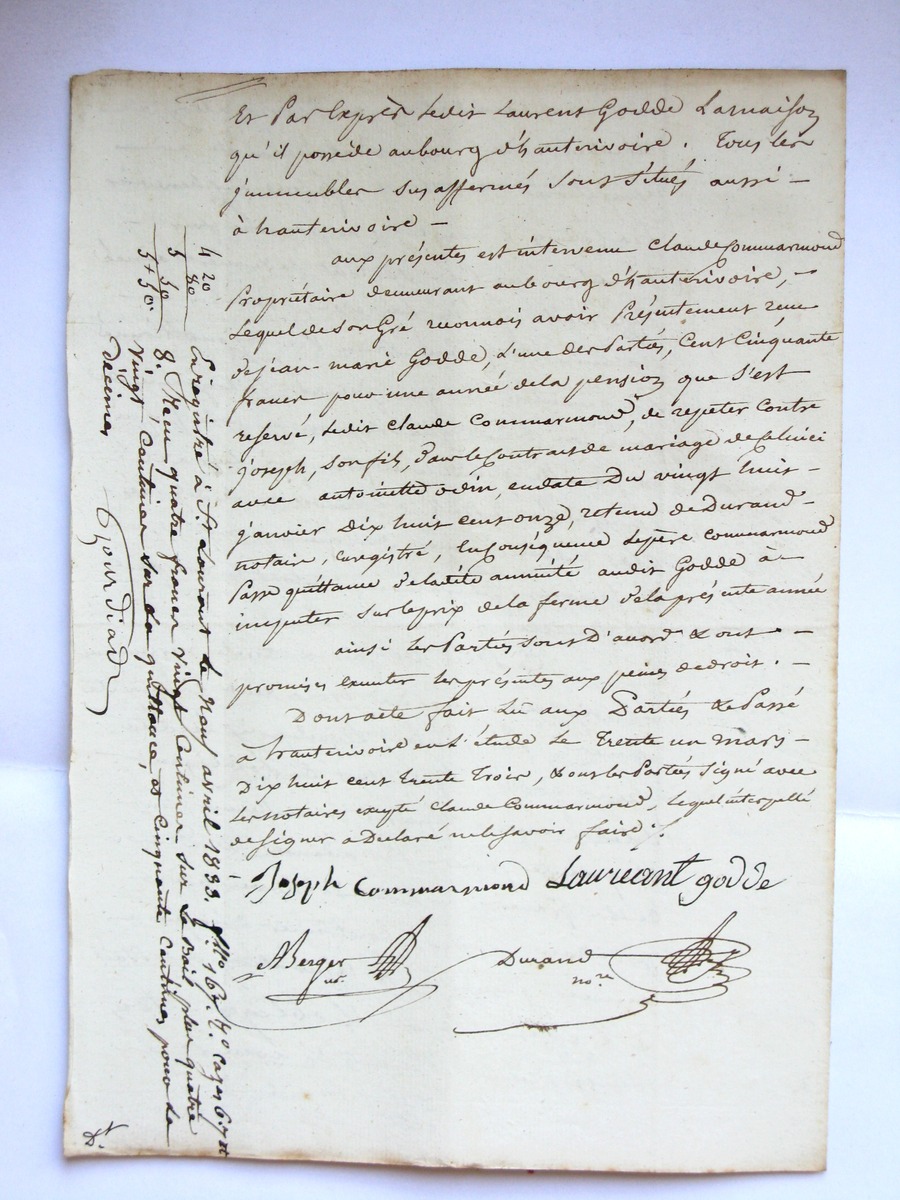 Et Par Exprès ledit Laurent Godde La maison
qu'il possède au bourg d'hauterivoire. Tous les
jmmeubles sus affermés sont Situés aussi –
à hauterivoire –
aux présentes est intervenu Claude Commarmond
Propriétaire demeurant au bourg d'hauterivoire, –
Lequel de Son Gré reconnois avoir Présentement reçu
de jean-marie Godde, L'une des Parties, Cent Cinquante
francs pour une année de la pension que S'est
reservé, Ledit Claude Commarmond, de repeter contre
joseph, Son fils, dans le Contrat de mariage de Celuici
avec antoinette odin, en date Du vingt huit –
janvier Dix huit cent onze, retenu de Durand –
notaire, enregistré, En Conséquence Le père Commarmond
Passe quittance de ladite annuité audit Godde à –
imputer sur le prix de la ferme de la présente année
ainsi les Parties sont D'accord & ont –
promises executer les présentes aux peines de droit. –
Dont acte fait Lu aux Parties & Passé
à hauterivoire en L'étude le Trente un mars –
Dix huit cent trente Trois, & ont les Parties Signé avec
Les notaires excepté Claude Commarmond, Lequel interpellé
de Signer a Déclaré ne le Savoir faire ./.
Joseph Commarmond Laureant godde
ABerger nre. Durand nore
Enregistré à St. Laurent le Neuf avril 1833. fllo. 167. Vo. cazes 6. 7 et
8. Recu quatre francs vingt Centimes sur Le Bail plus quatre
vingt Centimes sur la quittance, et Cinquante Centimes pour le
décime
Gourdiad
4 20
80
5
50
5 + 50